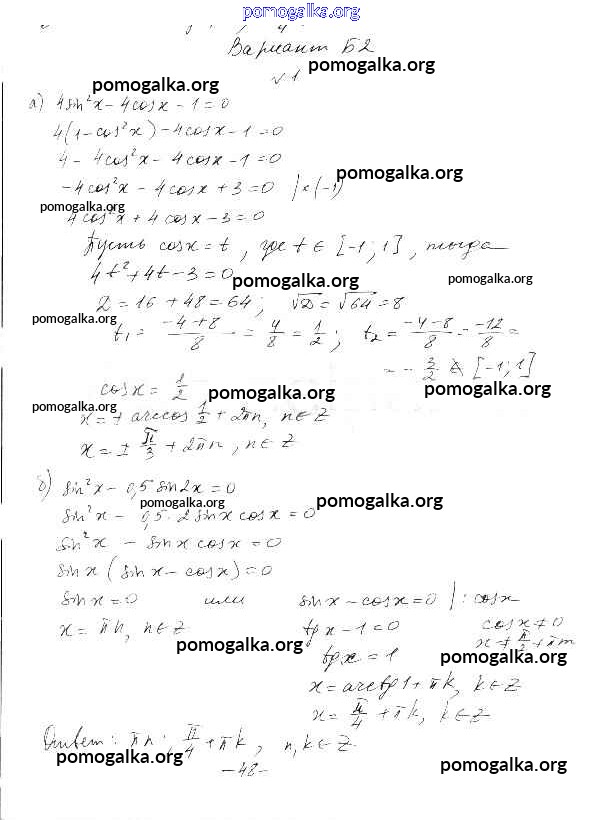 pomogalka.org
Вариант Б2
pomogalka.org
√1
pomogalka.org
а) 4sin²x - 4cosx - 1 = 0
4(1 - cos²x) - 4cosx - 1 = 0
4 - 4cos²x - 4cosx - 1 = 0
pomogalka.org
-4cos²x - 4cosx + 3 = 0 |×(-1)
pomogalka.org
4cos²x + 4cosx - 3 = 0
Пусть cosx = t, где t ∈ [-1; 1], тогда
4t² + 4t - 3 = 0
pomogalka.org
pomogalka.org
D = 16 + 48 = 64; √D = √64 = 8
pomogalka.org
t₁ = (-4+8)/8 = 4/8 = 1/2; t₂ = (-4-8)/8 = -12/8 =
= -3/2 ∉ [-1; 1]
cosx = 1/2
pomogalka.org
pomogalka.org
pomogalka.org
x = ± arccos 1/2 + 2πn, n ∈ Z
x = ± π/3 + 2πn, n ∈ Z
б) sin²x - 0,5 sin2x = 0
pomogalka.org
pomogalka.org
sin²x - 0,5 · 2sinx cosx = 0
sin²x - sinx cosx = 0
sinx (sinx - cosx) = 0
sinx = 0 или sinx - cosx = 0 |: cosx
x = πn, n ∈ Z tgx - 1 = 0 cosx ≠ 0
x ≠ π/2 + πm
pomogalka.org
tgx = 1
pomogalka.org
x = arctg1 + πk, k ∈ Z
x = π/4 + πk, k ∈ Z
Ответ: πn; π/4 + πk, n, k ∈ Z.
pomogalka.org
-48-
pomogalka.org